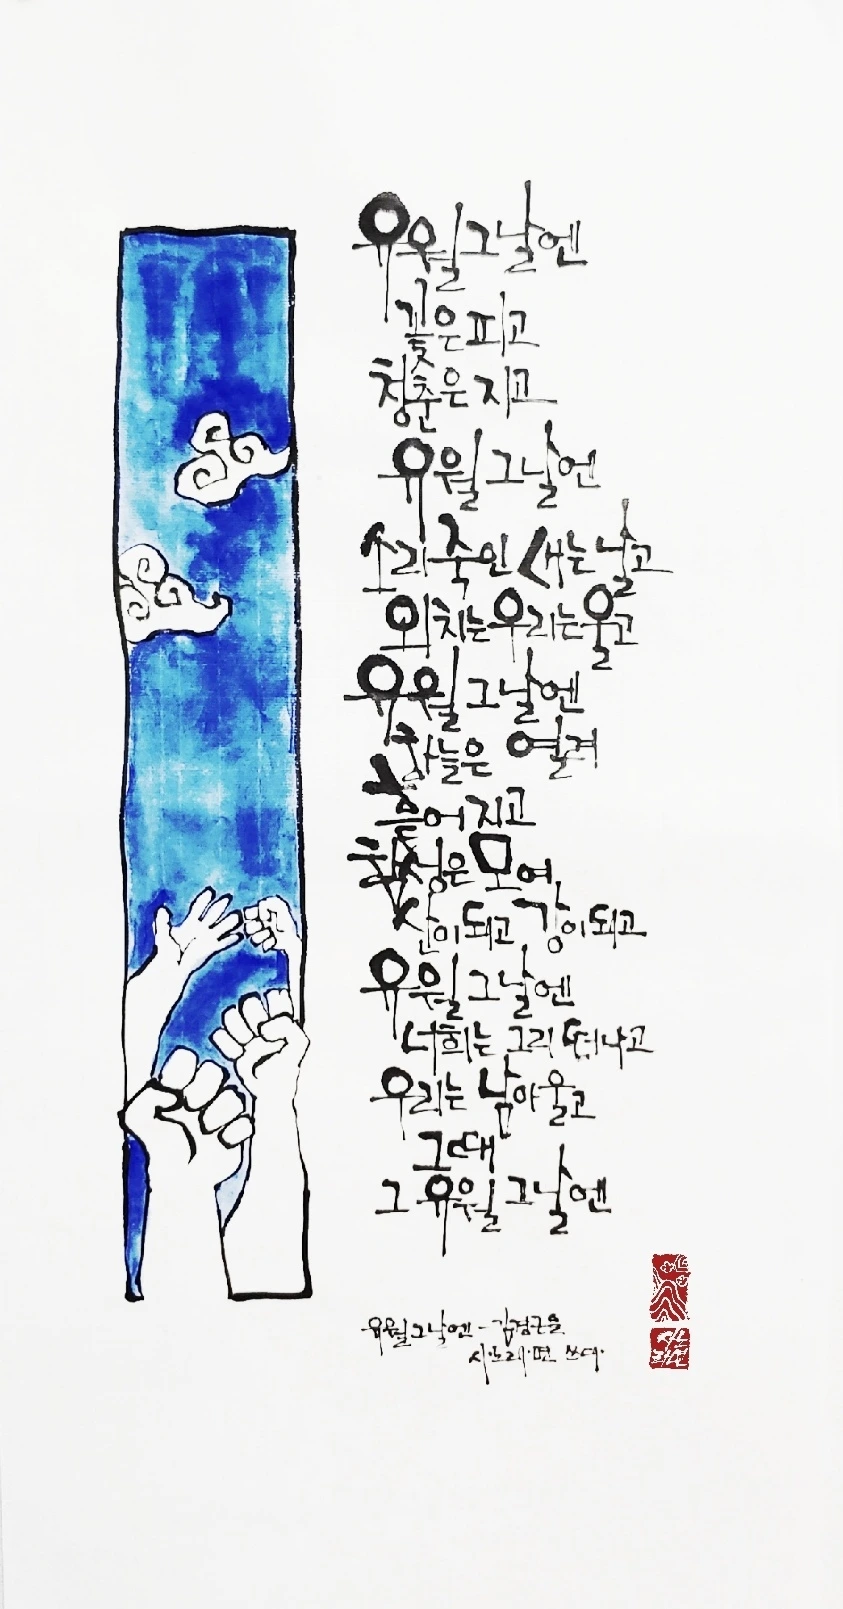 유월 그날엔
꽃은 피고
청춘은 지고
유월 그날엔
소리 죽인 새는 날고
외치는 우리는 울고
유월 그날엔
하늘은 열려
흩어지고
함성은 모여
산이 되고 강이 되고
유월 그날엔
너희는 그리 떠나고
우리는 남아 울고
그대
그 유월 그날엔
유월 그날엔 - 김경근을
시·노래·면 쓰다·